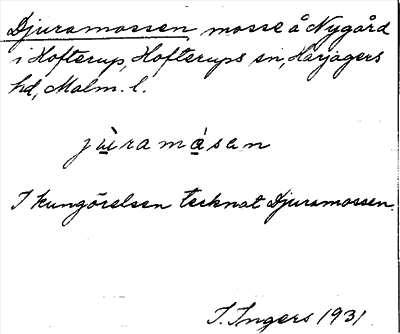 Djuramossen, mosse å Nygård
i Hofterup, Hofterups sn, Harjagers
hd, Malm. l.
jùramåsan
I kungörelsen tecknat Djuramossen.
I. Ingers 1931